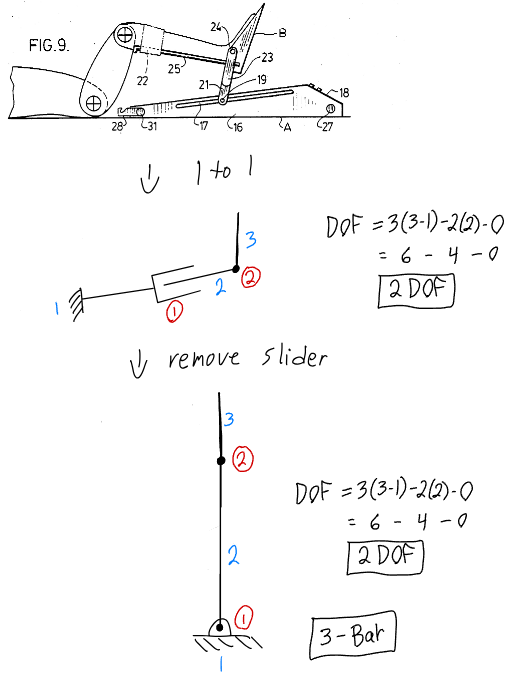 FIG.9.
24
B
22
25
23
21
19
18
28
31
17
16
A
27
1 to 1
3
2
②
1
①
DOF = 3(3-1)-2(2)-0
= 6 - 4 - 0
2 DOF
remove slider
3
②
2
①
1
DOF = 3(3-1)-2(2)-0
= 6 - 4 - 0
2 DOF
3-Bar